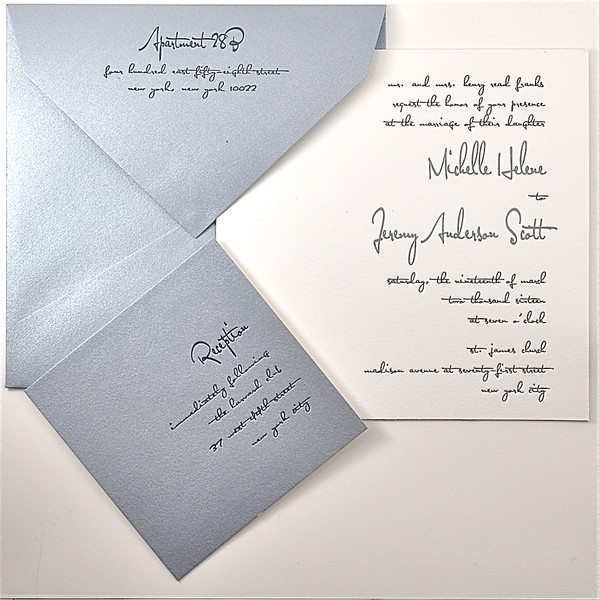 Apartment 28B
four hundred east fifty-eighth street
new york, new york 10022
mr. and mrs. henry read franks
request the honor of your presence
at the marriage of their daughter
Michelle Helene
to
Jeremy Anderson Scott
saturday, the nineteenth of march
two thousand sixteen
at seven o'clock
st. james church
madison avenue at seventy-first street
new york city
Reception
immediately following
the harvard club
37 west fifth street
new york city